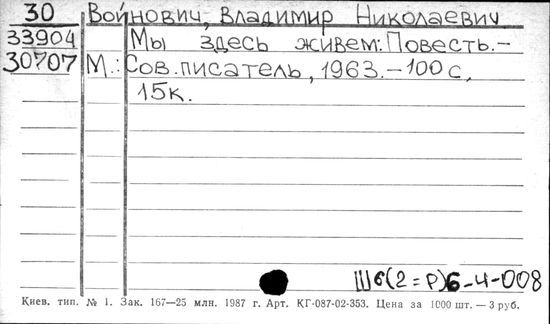 30 Войнович, Владимир Николаевич
33904 Мы здесь живем: Повесть.-
30707 М.: Сов. писатель, 1963.-100 с,
15к.
Ш6(2=Р)6-4-008
Киев. тип. № 1. Зак. 167—25 млн. 1987 г. Арт. КГ-087-02-353. Цена за 1000 шт. — 3 руб.